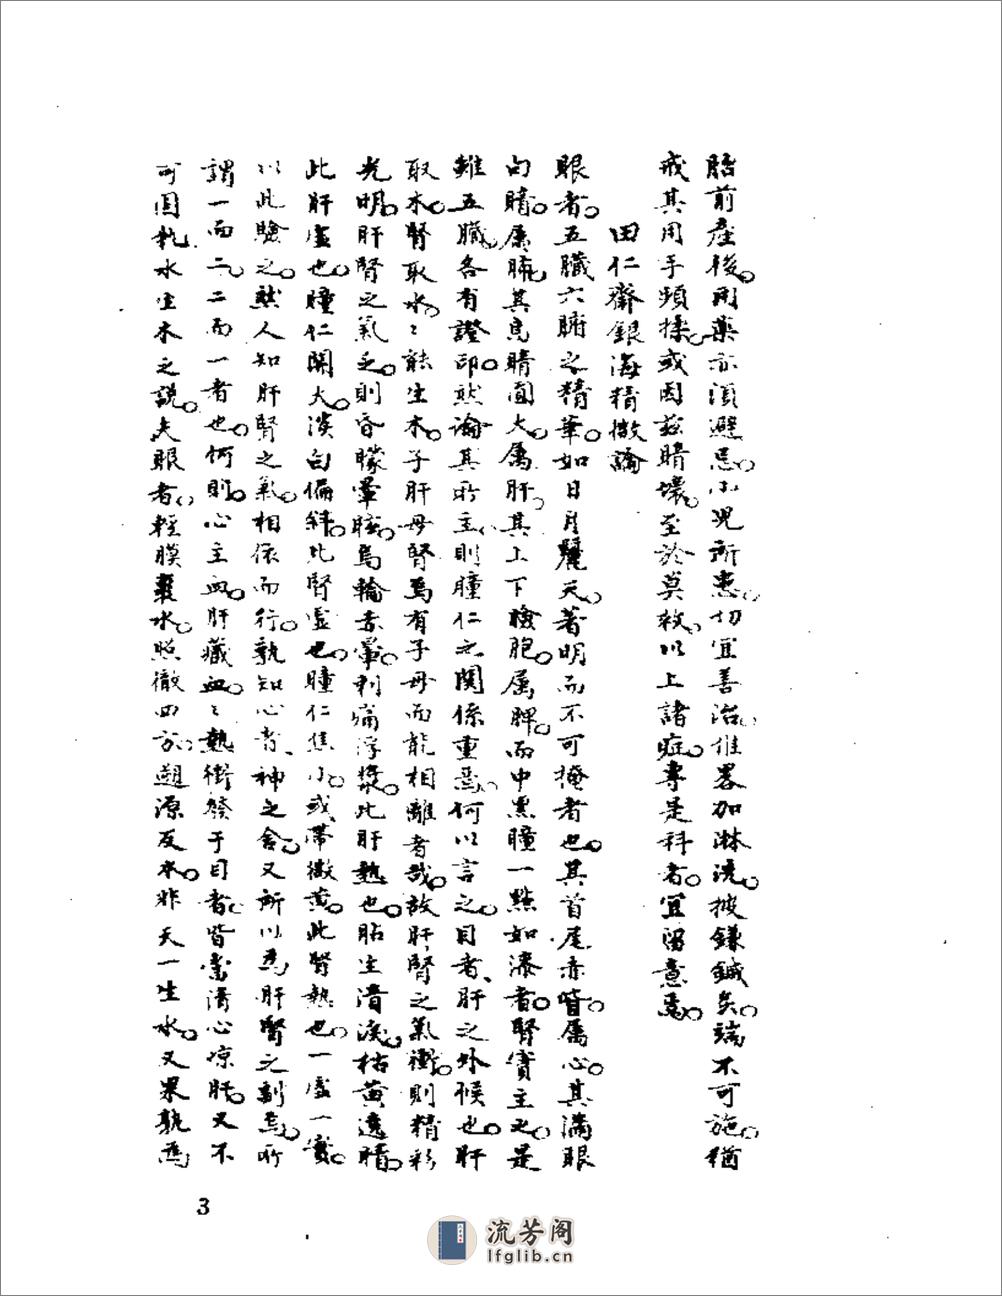 胎前產後。用藥亦須避忌。小兒所患。切宜善治。惟畧加淋洗。披鎌鍼灸。端不可施。猶
戒其用手頻揉。或因茲睛壞。至於莫救。以上諸症。專是科者。宜留意焉。
田仁齋銀海精微論
眼者。五臟六腑之精華。如日月麗天。著明而不可掩者也。其首尾赤眥。屬心。其滿眼
白睛。屬肺。其烏睛圓大。屬肝。其上下瞼胞。屬脾。而中黑瞳一點如漆者。腎實主之。是
雖五臟。各有證印。然論其所主。則瞳仁之關係重焉。何以言之。目者、肝之外候也。肝
取木。腎取水。々能生木。子肝母腎。焉有子母而能相離者哉。故肝腎之氣衝。則精彩
光明。肝腎之氣乏。則昏矇暈眩。烏輪赤暈。刺痛浮漿。此肝熱也。眵生清淚。枯黃遶睛。
此肝虛也。瞳仁開大。淡白偏斜。此腎虛也。瞳仁焦小。或帶微黃。此腎熱也。一虛一實。
以此驗之。然人知肝腎之氣。相依而行。孰知心者、神之舍。又所以為肝腎之副焉。所
謂一而二。二而一者也。何則。心主血。肝藏血。々熱衝發于目者。皆當清心涼肝。又不
可固執水生木之說。夫眼者。輕膜裹水。照徹四方。遡源反本。非天一生水。又果孰為
3
流芳阁
lfglib.cn